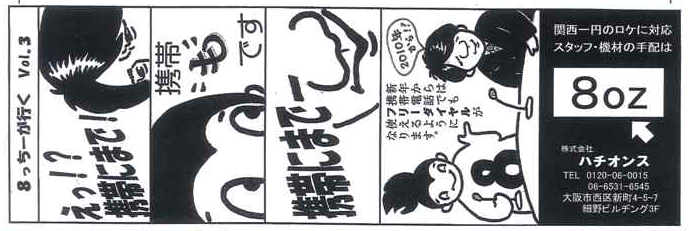 8っちーが行く Vol.3
えっ!?
携帯にまで!
携帯
も
です
携帯にまでー
2010年
から!?
新年からは
携帯電話でも
フリーダイヤルが
使えるように
なります。
8
関西一円のロケに対応
スタッフ・機材の手配は
8oz
株式会社
ハチオンス
TEL 0120-06-0015
06-6531-6545
大阪市西区新町4-5-7
細野ビルヂング3F